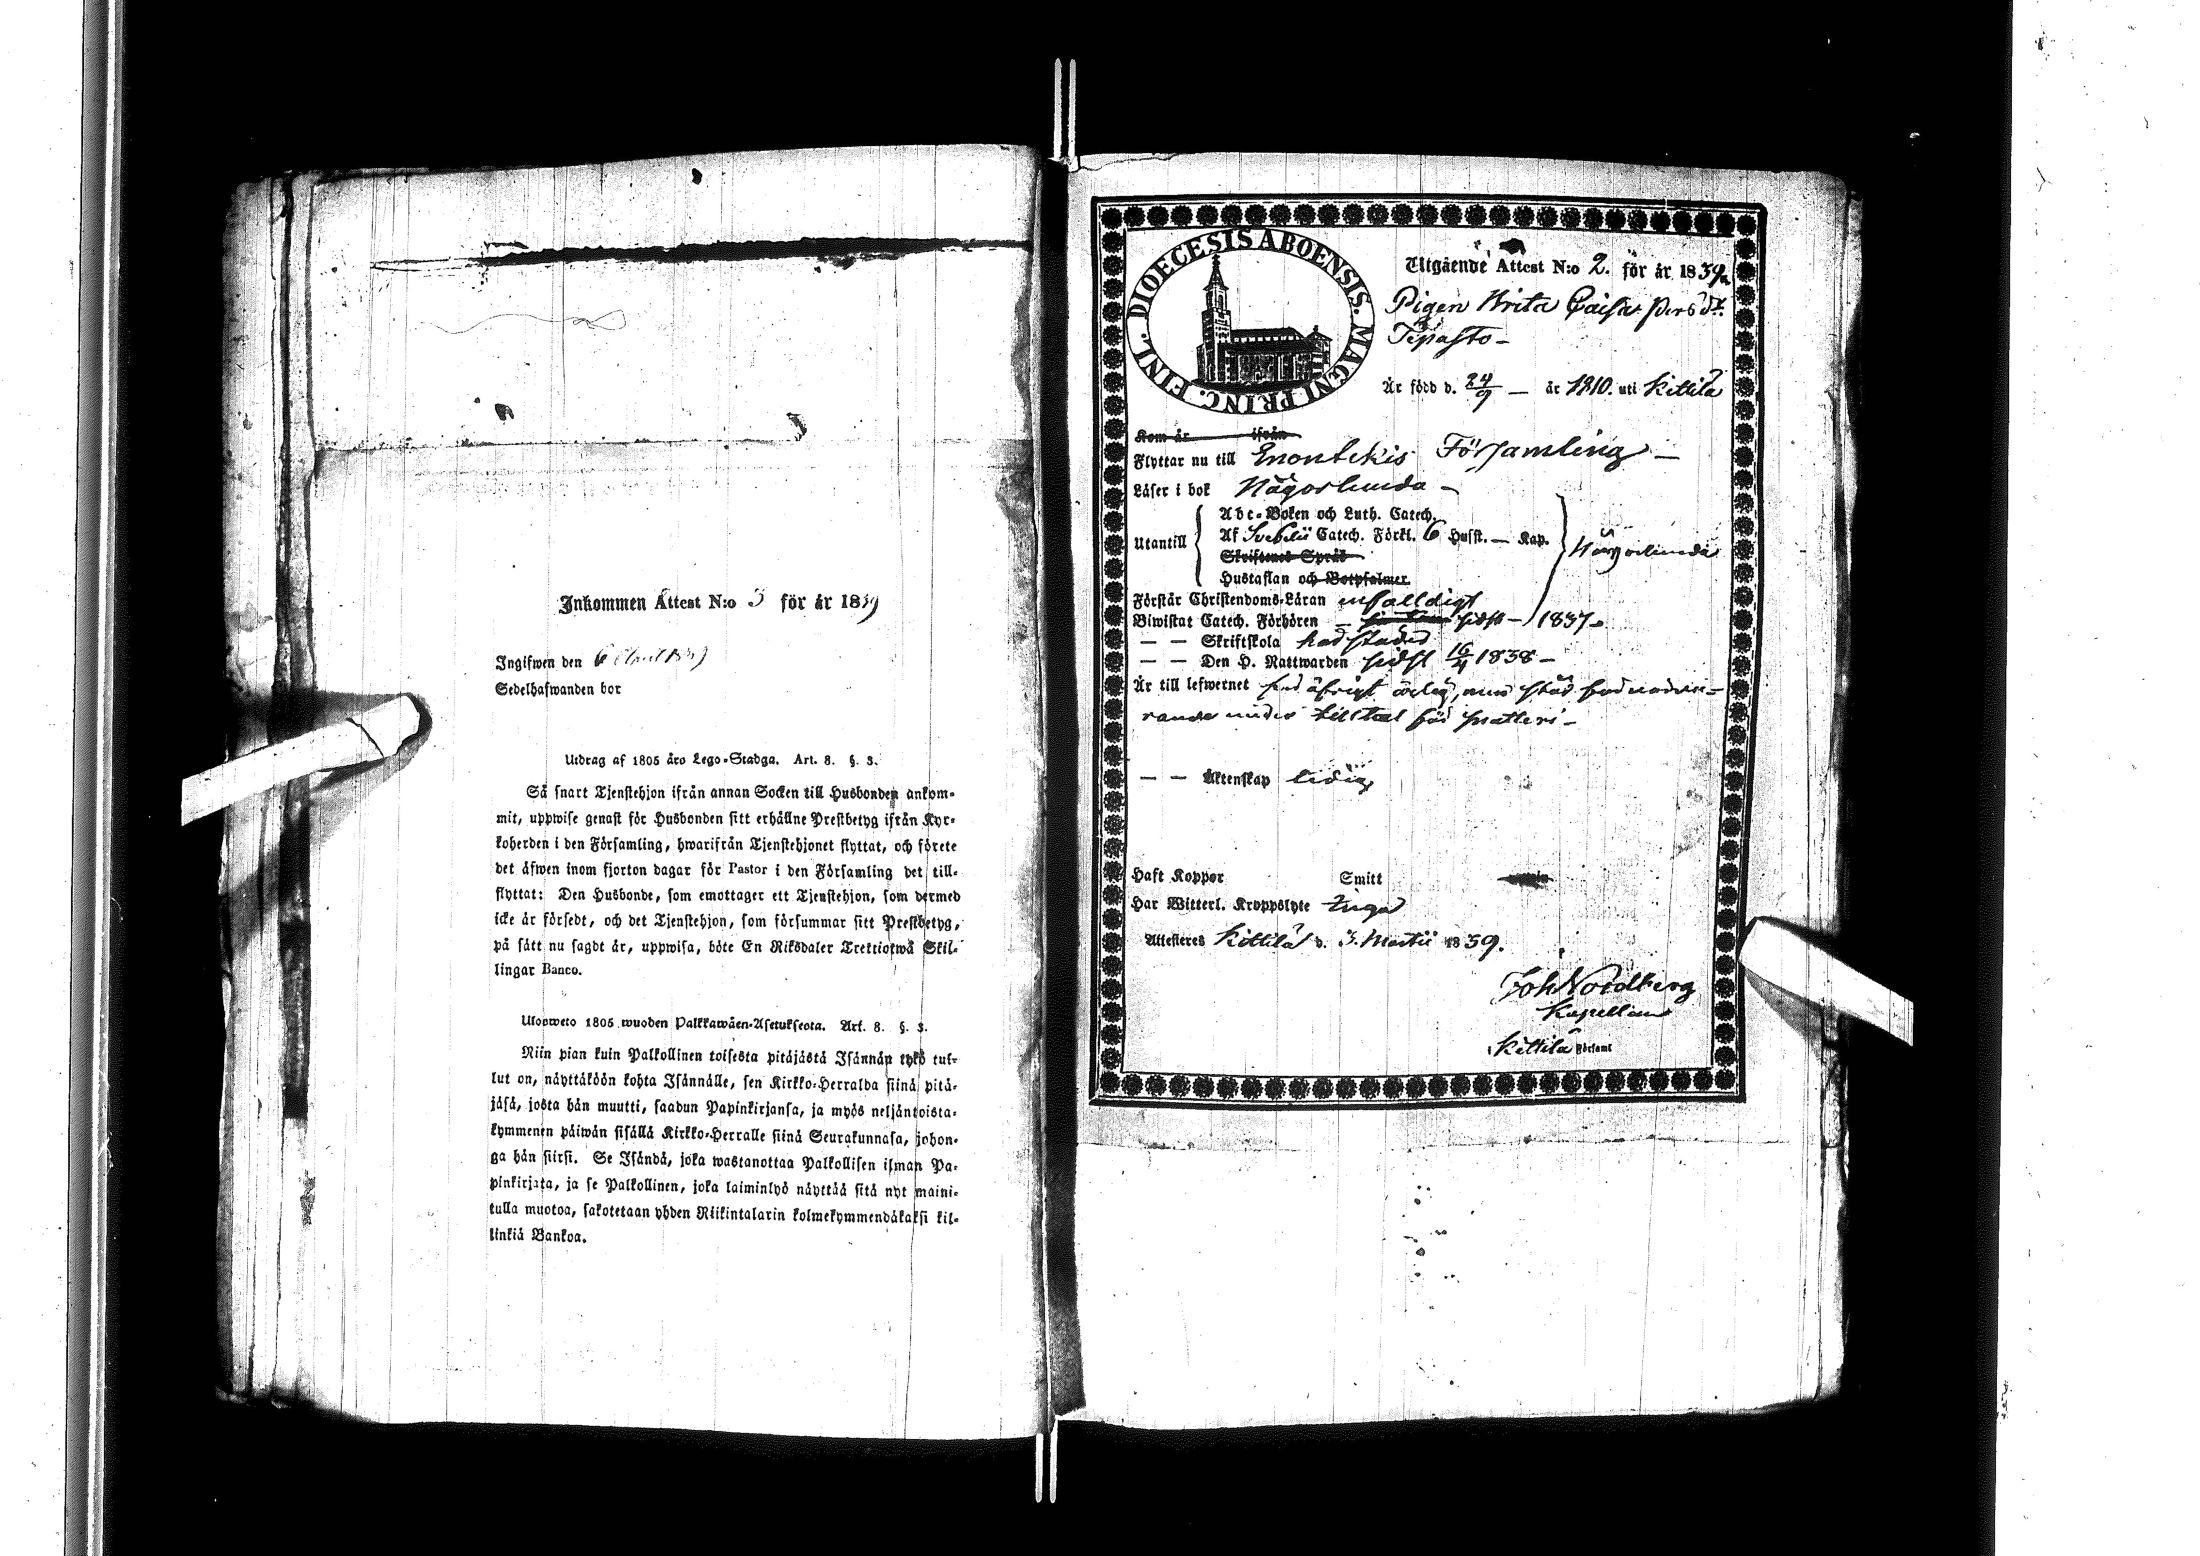 Inkommen Attest N:o 3 för år 1839
Ingifwen den 6 April 1839
Sedelhafwanden bor
Utdrag af 1805 års Lego-Stadga. Art. 8. §. 3.
Så snart Tjenstehjon ifrån annan Socken till Husbonden ankom-
mit, uppwise genast för Husbonden sitt erhållne Prestbetyg ifrån Kyr-
koherden i den Församling, hwarifrån Tjenstehjonet flyttat, och förete
det äfwen inom fjorton dagar för Pastor i den Församling det till-
flyttat: Den Husbonde, som emottager ett Tjenstehjon, som dermed
icke är försedt, och det Tjenstehjon, som försummar sitt Prestbetyg,
på sätt nu sagdt är, uppwisa, böte En Riksdaler Trettiotwå Skil-
lingar Banco.
Ulosweto 1805 wuoden Palkkawäen-Asetuksesta. Art. 8. §. 3.
Niin pian kuin Palkollinen toisesta pitäjästä Isännän tykö tul-
lut on, näyttäköön kohta Isännälle, sen Kirkko-Herralda siinä pitä-
jäsä, josta hän muutti, saadun Papinkirjansa, ja myös neljäntoista-
kymmenen päiwän sisällä Kirkko-Herralle siinä Seurakunnasa, johon-
ga hän siirsi. Se Isändä, joka wastanottaa Palkollisen ilman Pa-
pinkirjata, ja se Palkollinen, joka laiminlyö näyttää sitä nyt maini-
tulla muotoa, sakotetaan yhden Riikintalarin kolmekymmendäkaksi kil-
linkiä Bankoa.
DIOECESIS ABOENSIS. MAGNI PRINC. FINL.
Utgående Attest N:o 2. för år 1839.
Pigen Brita Caisa Persdr.
Tepasto -
Är född d. 24/9 - år 1810. uti Kittilä
Kom år ifrån
Flyttar nu till Enontekis Församling -
Läser i bok Någorlunda -
Utantill
Abc-Boken och Luth. Catech.
Af Svebelii Catech. Förkl. 6 Hufst. - Kap.
Skriftenes Språk
Hustaflan och Botpsalmer
Någorlunda
Förstår Christendoms-Läran enfalldigt
Biwistat Catech. Förhören - sidst - 1837.
- - Skriftskola
- - Den H. Nattwarden sidst 16/4 1838 -
Är till lefwernet öfrigt ärlig, men står
under tilltal för snatteri -
- - Äktenskap ledig
Haft Koppor Smitt
Har Witterl. Kroppslyte Inga
Attesteres Kittilä d. 3. Martii 1839.
Joh Nordberg
Kapellan
Kittilä Förſaml